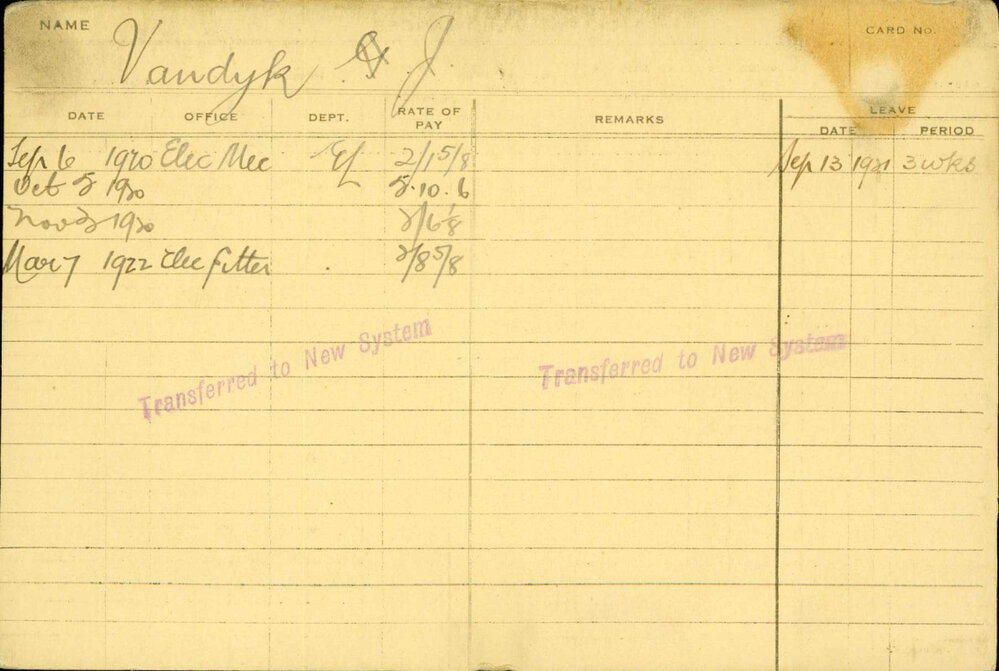 NAME Vandyk J. CARD No.
DATE OFFICE DEPT. RATE OF PAY REMARKS LEAVE DATE PERIOD
Sep 6 1920 Elec Mec El 2/1 5/8 Sep 13 1921 3 wks
Oct 5 1920 5.10.6
Nov 2 1920 2/6 1/8
Mar 7 1922 Elec Fitter 2/8 5/8
Transferred to New System
Transferred to New System